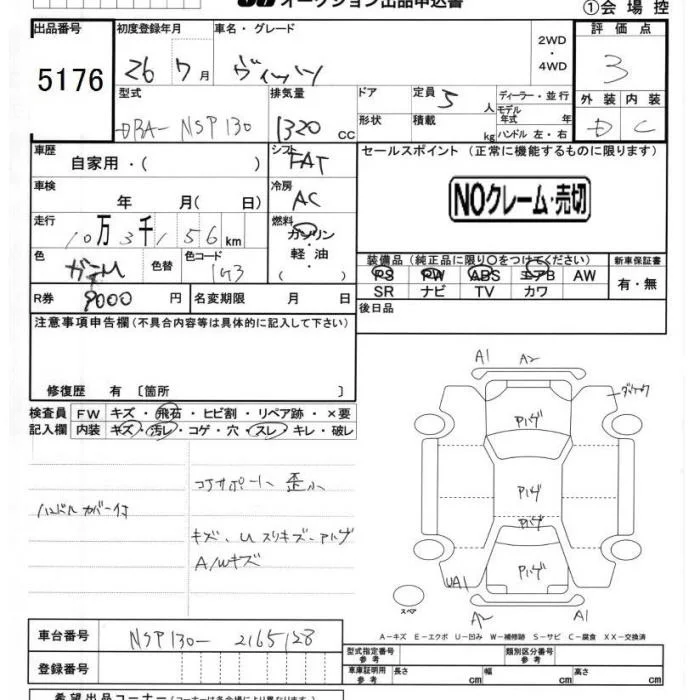 オークション出品申込書
①会場控
出品番号 初度登録年月 車名・グレード 2WD・4WD 評価点
5176 26 7月 ヴィッツ 3
型式 排気量 ドア 定員 5人 ディーラー・並行 外装 内装
DBA-NSP130 1320 CC 形状 積載 kg モデル年式 年 D C
ハンドル 左・右
車歴 自家用・( ) シフト FAT セールスポイント(正常に機能するものに限ります)
車検 年 月( 日) 冷房 AC NOクレーム・売切
走行 10万3千156km 燃料 ガソリン
軽油
( )
色 色替 色コード 1G3 装備品(純正品に限り○をつけてください) 新車保証書
PS PW ABS エアB AW 有・無
SR ナビ TV カワ
R券 9000円 名変期限 月 日 後日品
注意事項申告欄(不具合内容等は具体的に記入して下さい)
修復歴 有 〔箇所 〕
検査員 FW キズ・飛石・ヒビ割・リペア跡・×要
記入欄 内装 キズ・汚レ・コゲ・穴・スレ・キレ・破レ
コアサポート 歪小
ハンドルカバー付
キズ、U スリキズ、アルゲ
A/Wキズ
A1 A2
Pハゲ
Pハゲ
Pハゲ
Pハゲ
UA1
スペア
A2 A1
A-キズ E-エクボ U-凹み W-補修跡 S-サビ C-腐食 XX-交換済
車台番号 NSP130-2165128
登録番号
型式指定番号 参考 類別区分番号 参考
車庫証明用 参考 長さ cm 幅 cm 高さ cm
希望出品コーナー(コーナーは各会場により異なります)